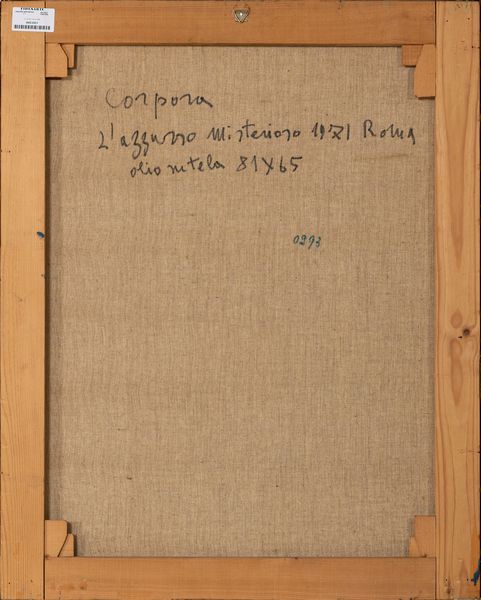 Corpora
L'azzurro Misterioso 1971 Roma
olio su tela 81X65
0293